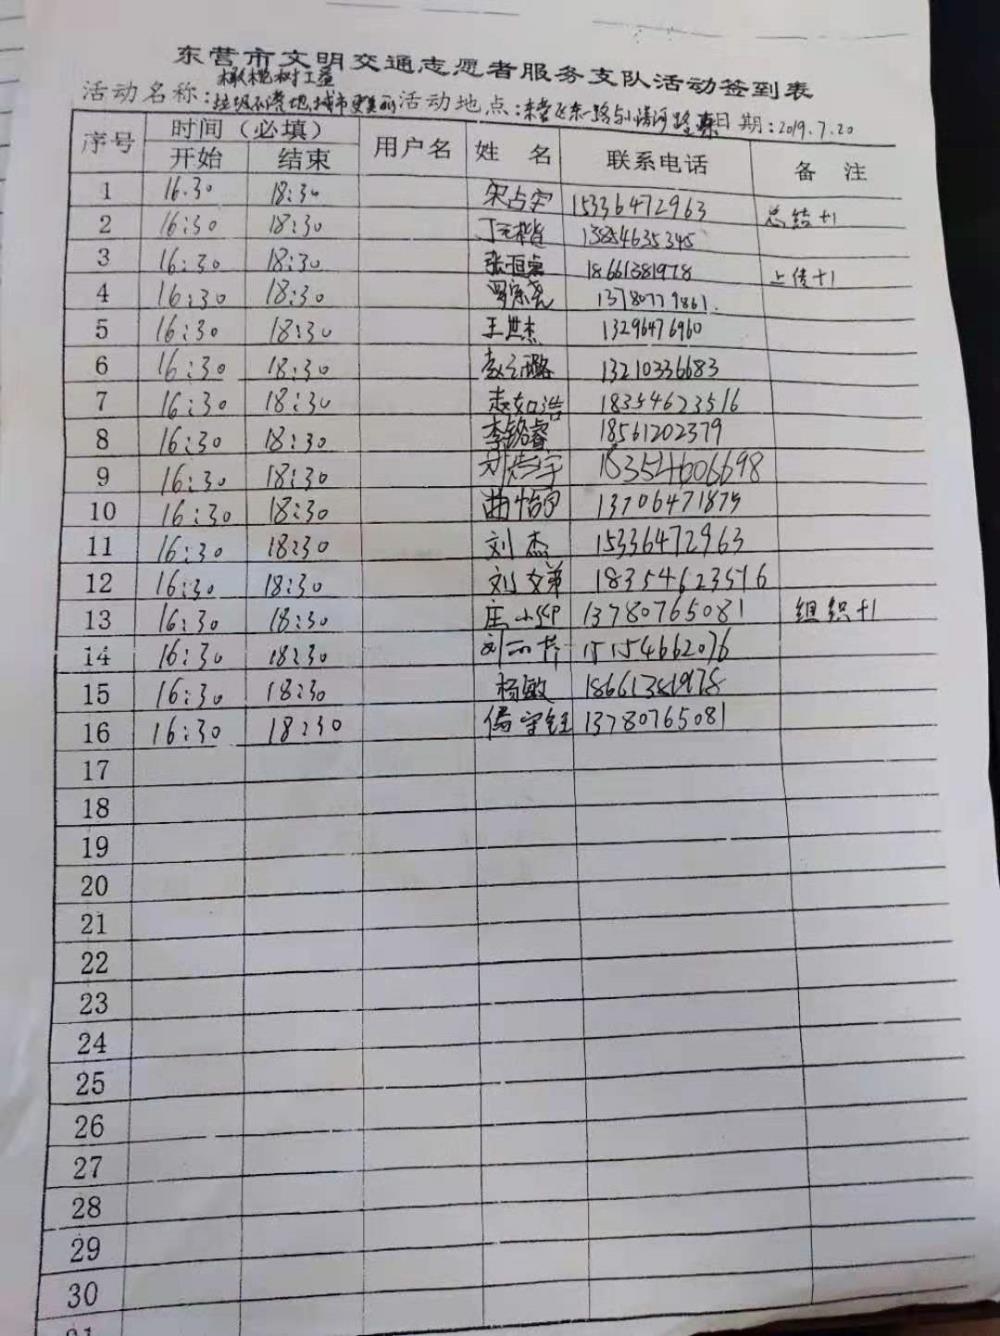 东营市文明交通志愿者服务支队活动签到表
橄榄树工益
活动名称：垃圾不落地,城市更美丽 活动地点：东营区东一路与小清河路 日期：2019.7.20
序号 时间（必填） 用户名 姓 名 联系电话 备 注
开始 结束
1 16.30 18:30 宋占宇 15336472963 总结+1
2 16:30 18:30 13854635345
3 16:30 18:30 18661381978 上传+1
4 16:30 18:30 13780779861.
5 16:30 18:30 王世杰 13296476960
6 16:30 18:30 13210336683
7 16:30 18:30 18354623516
8 16:30 18:30 李铭睿 18561202379
9 16:30 18:30 15354606698
10 16:30 18:30 13706471875
11 16:30 18:30 刘杰 15336472963
12 16:30 18:30 18354623516
13 16:30 18:30 13780765081 组织+1
14 16:30 18:30 15154662076
15 16:30 18:30 杨敏 18661381978
16 16:30 18:30 13780765081
17
18
19
20
21
22
23
24
25
26
27
28
29
30
31